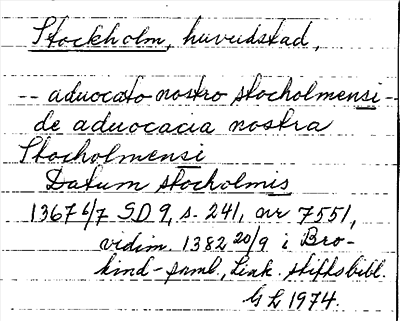 Stockholm, huvudstad,
-- aduocato nostro stocholmensi --
de aduocacia nostra
Stocholmensi
Datum stocholmis
1367 6/7 SD 9, s. 241, nr 7551,
vidim. 1382 20/9 i Bro-
kind-saml., Link. stiftsbibl.
G L 1974.